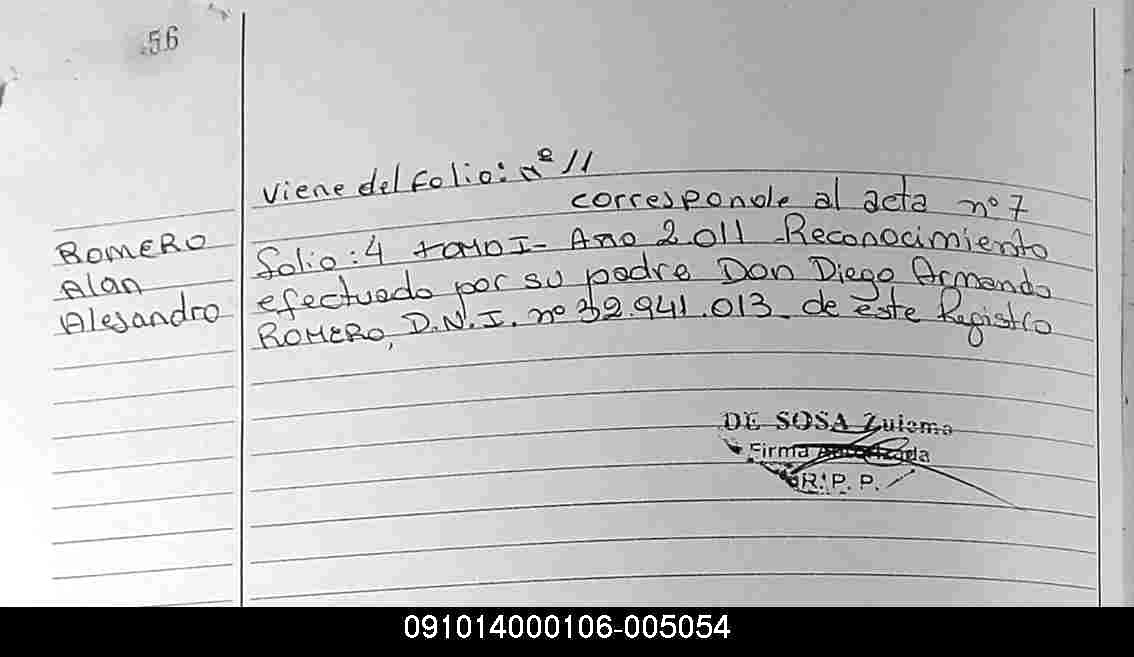 56
Viene del Folio: nº 11
corresponde al acta nº 7
ROMERO
Alan
Alejandro
folio: 4 tomo I- Año 2.011 - Reconocimiento
efectuado por su padre Don Diego Armando
ROMERO, D.N.I. nº 32.941.013. de este Registro
DE SOSA Zulema
Firma Autorizada
R. P. P.
091014000106-005054